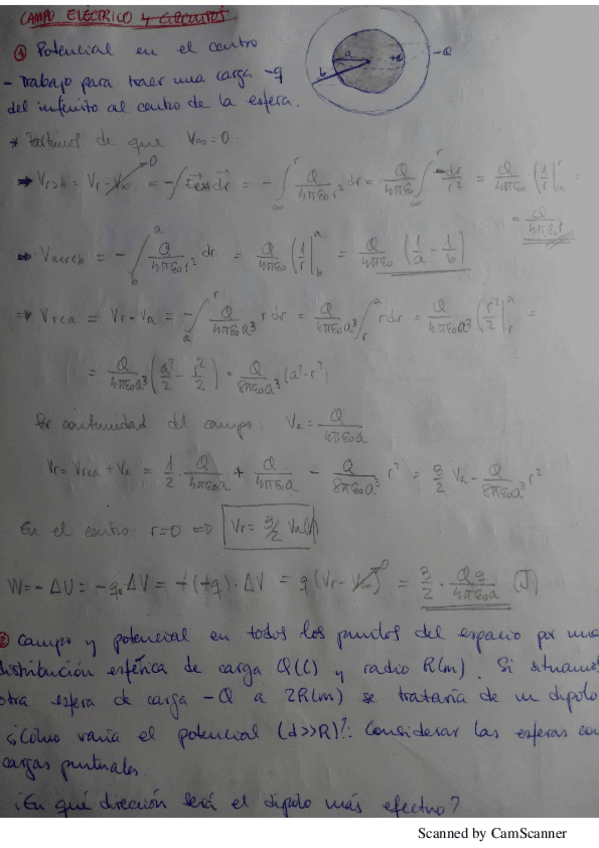 CAMPO ELÉCTRICO y CIRCUITOS
① Potencial en el centro
- Trabajo para traer una carga -q
del infinito al centro de la esfera.
a b +Q -Q
* Partimos de que V∞ = 0.
⇒ Vr>b = Vr - V∞ = -∫ dr = -∫_∞^r Q/4πε₀r² dr = Q/4πε₀ ∫_∞^r -dr/r² = Q/4πε₀ · (1/r|_∞^r =
= Q/4πε₀r
⇒ Va<r<b = -∫_b^a Q/4πε₀r² dr = Q/4πε₀ (1/r|_b^a = Q/4πε₀ (1/a - 1/b)
⇒ Vr<a = Vr - Va = -∫_a^r Q/4πε₀a³ r dr = Q/4πε₀a³ ∫_r^a r dr = Q/4πε₀a³ (r²/2|_r^a =
= Q/4πε₀a³ (a²/2 - r²/2) = Q/8πε₀a³ (a² - r²)
Por continuidad del campo: Va = Q/4πε₀a
Vr = Vr<a + Va = 1/2 · Q/4πε₀a + Q/4πε₀a - Q/8πε₀a³ r² = 3/2 Va - Q/8πε₀a³ r²
En el centro: r=0 ⇒ Vr = 3/2 Va (V)
W = -ΔU = -q₀·ΔV = +(+q)·ΔV = q(Vr - V∞)⁰ = 3/2 · Qq/4πε₀a (J)
② Campo y potencial en todos los puntos del espacio por una
distribución esférica de carga Q(C) y radio R(m). Si situamos
otra esfera de carga -Q a 2R(m) se trataría de un dipolo
¿Cómo varía el potencial (d>>R)?: Considerar las esferas con
cargas puntuales.
¿En qué dirección será el dipolo más efectivo?
Scanned by CamScanner